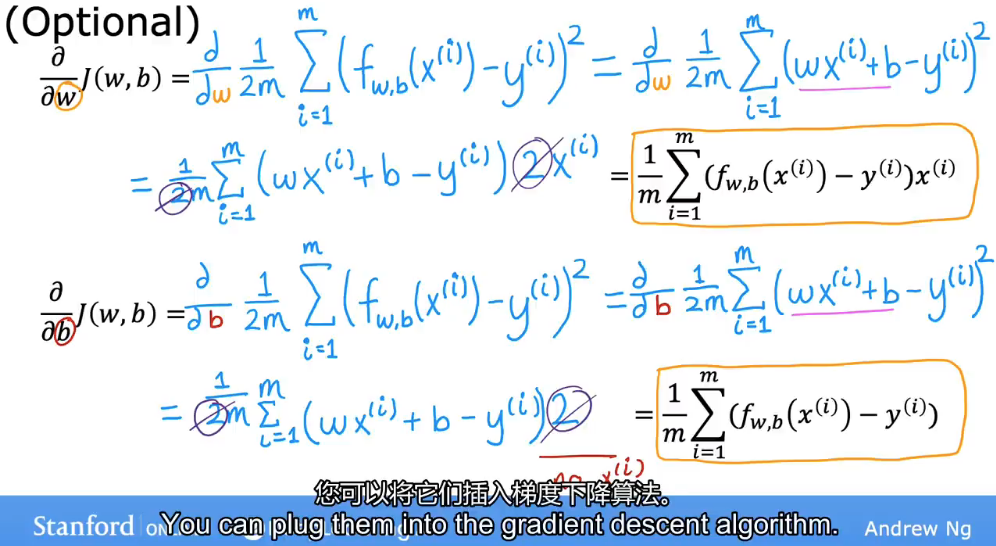 (Optional)
∂/∂w J(w, b) = d/dw 1/2m Σ_{i=1}^{m} (f_{w,b}(x^{(i)}) − y^{(i)})² = d/dw 1/2m Σ_{i=1}^{m} (wx^{(i)} + b − y^{(i)})²
= 1/2m Σ_{i=1}^{m} (wx^{(i)} + b − y^{(i)}) 2x^{(i)} = 1/m Σ_{i=1}^{m} (f_{w,b}(x^{(i)}) − y^{(i)})x^{(i)}
∂/∂b J(w, b) = d/db 1/2m Σ_{i=1}^{m} (f_{w,b}(x^{(i)}) − y^{(i)})² = d/db 1/2m Σ_{i=1}^{m} (wx^{(i)} + b − y^{(i)})²
= 1/2m Σ_{i=1}^{m} (wx^{(i)} + b − y^{(i)}) 2 = 1/m Σ_{i=1}^{m} (f_{w,b}(x^{(i)}) − y^{(i)})
x^{(i)}
您可以将它们插入梯度下降算法。
You can plug them into the gradient descent algorithm.
Stanford Andrew Ng